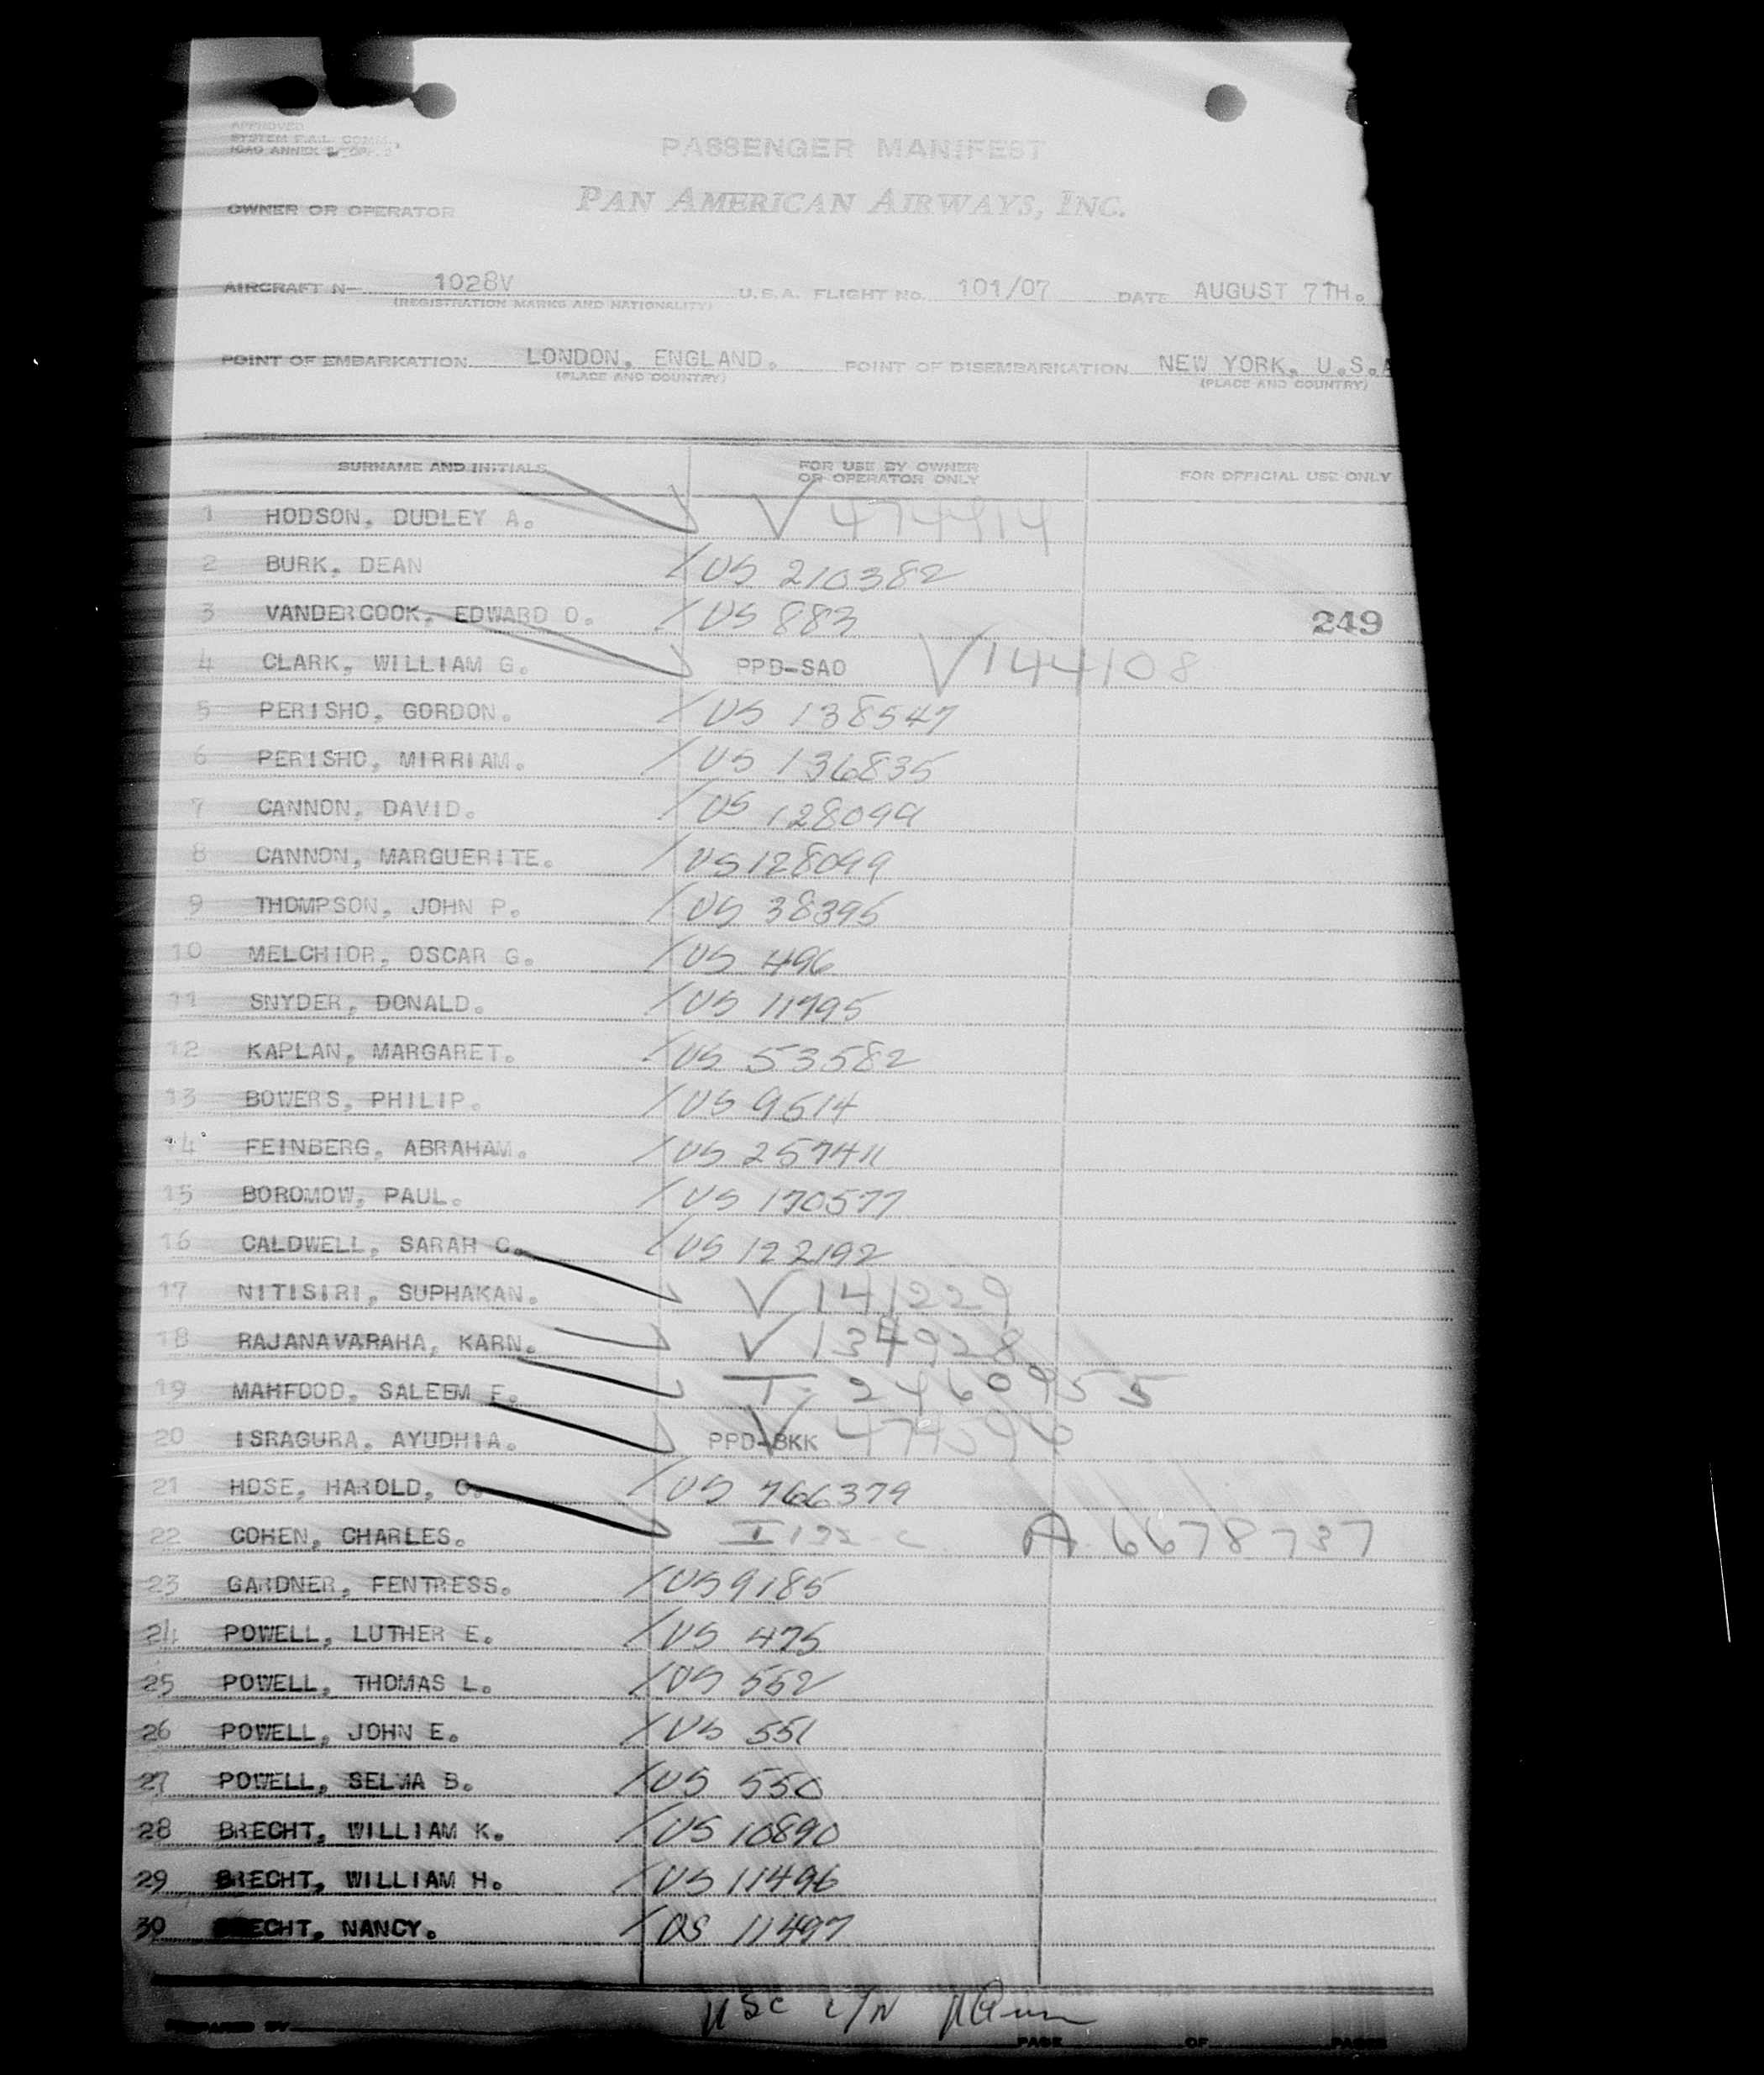 APPROVED
SYSTEM F.A.L. COMM.
ICAO ANNEX
PASSENGER MANIFEST
OWNER OR OPERATOR PAN AMERICAN AIRWAYS, INC.
AIRCRAFT N— 1028V U.S.A. FLIGHT NO. 101/07 DATE AUGUST 7TH.
(REGISTRATION MARKS AND NATIONALITY)
POINT OF EMBARKATION LONDON, ENGLAND. POINT OF DISEMBARKATION NEW YORK, U.S.A
(PLACE AND COUNTRY) (PLACE AND COUNTRY)
SURNAME AND INITIALS FOR USE BY OWNER OR OPERATOR ONLY FOR OFFICIAL USE ONLY
1 HODSON, DUDLEY A. V 474914
2 BURK, DEAN /US 210382
3 VANDERCOOK, EDWARD O. /US 883 249
4 CLARK, WILLIAM G. PPD-SAO V144108
5 PERISHO, GORDON. /US 138547
6 PERISHO, MIRRIAM. /US 136835
7 CANNON, DAVID. /US 128099
8 CANNON, MARGUERITE. /US 128099
9 THOMPSON, JOHN P. /US 38395
10 MELCHIOR, OSCAR G. /US 496
11 SNYDER, DONALD. /US 11795
12 KAPLAN, MARGARET. /US 53582
13 BOWERS, PHILIP. /US 9514
14 FEINBERG, ABRAHAM. /US 257411
15 BOROMOW, PAUL. /US 170577
16 CALDWELL, SARAH C. /US 122192
17 NITISIRI, SUPHAKAN. V 141229
18 RAJANAVARAHA, KARN. V 134928
19 MAHFOOD, SALEEM F. T. 2460955
20 ISRAGURA, AYUDHIA. PPD-BKK V
21 HOSE, HAROLD, C. /US 766379
22 COHEN, CHARLES. A 6678737
23 GARDNER, FENTRESS. /US 9185
24 POWELL, LUTHER E. /US 475
25 POWELL, THOMAS L. /US 552
26 POWELL, JOHN E. /US 551
27 POWELL, SELMA B. /US 550
28 BRECHT, WILLIAM K. /US 10890
29 BRECHT, WILLIAM H. /US 11496
30 BRECHT, NANCY. /US 11497
USC
PREPARED BY PAGE OF PAGES